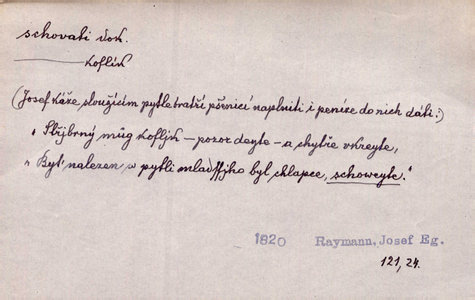 schovati dok.
——— koflík
(Josef káže sloužícím pytle bratří pšenicí naplniti i peníze do nich dáti:)
„Stříbrný můg koflýk – pozor deyte – a chytře vkreyte,
„Byť nalezen, w pytli mladssýho byl chlapce, schoweyte."
1820 Raymann, Josef Eg.
121, 24.